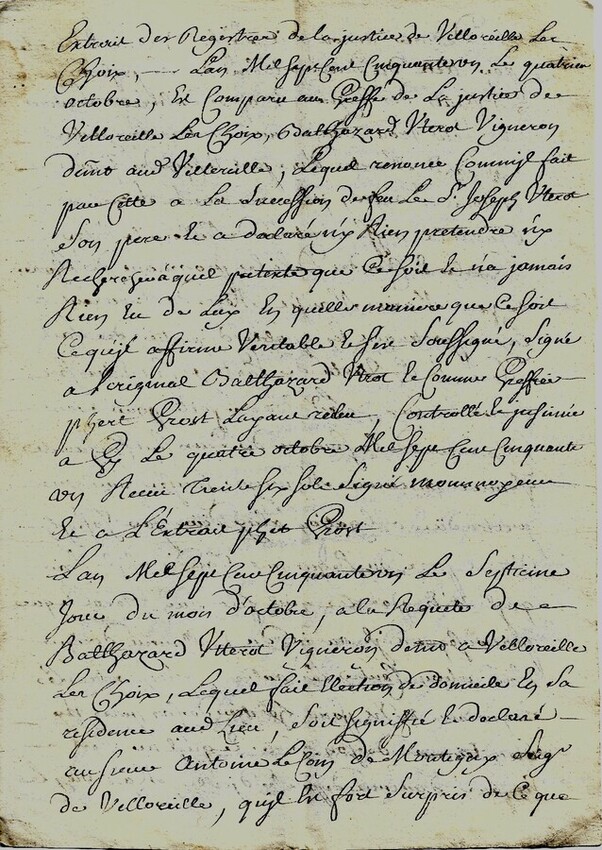 Extrait des Registres de la justice de Velloreille Les
Choix, Lan Mil sept Cent Cinquante un Le quatrieme
octobre, Est Comparu au Greffe de La justice de
Velloreille Les Choix, Balthazard Vterot Vigneron
dud Velloreille, Lequel renonce Comme jl fait
par Cette a La Succession de feu Le Sr Joseph Vterot
Son pere Et a declaré ny Rien pretendre ny
Rechercher a quel pretexte que Ce soit Et na jamais
Rien Eu de Luy En quelle maniere que Ce soit
Ce qujl affirme Veritable Et sest Soussigné, Signé
a Loriginal Balthazard Vterot Et Comme Greffier
Prost Controllé Et jnsinué
a Gy Le quatre octobre Mil sept Cent Cinquante
un Receu Trente six sols Signé
Et a L'Extrait Prost
Lan Mil sept Cent Cinquante un Le
Jour du mois d'octobre, a la Requete de
Balthazard Vterot Vigneron demt a Velloreille
Les Choix, Lequel fait Election de domicile En sa
residence aud Lieu, soit signiffié Et declaré
au sieur Antoine Le Coin de Montigny Seigr
de Velloreille, qujl Est fort surpris de Ce que